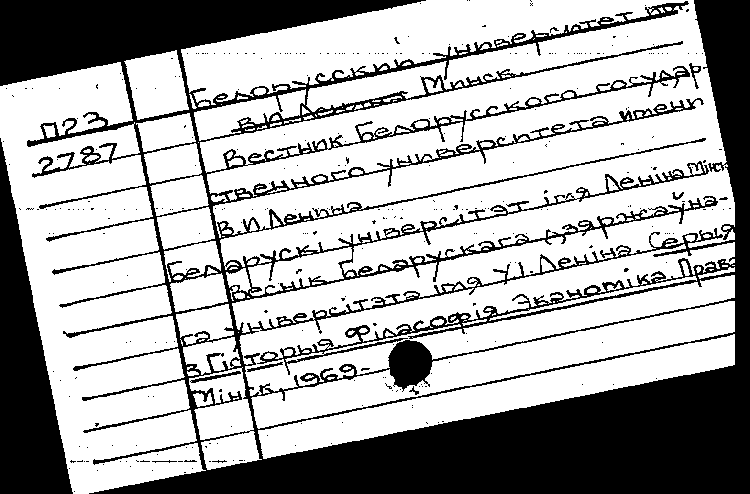 П23
2787
Белорусский университет им.
В.И. Ленина Минск.
Вестник Белорусского государ-
ственного университета имени
В.И. Ленина.
Беларускі універсітэт імя Леніна Мінск
Веснік Беларускага дзяржаўна-
га універсітэта імя У.І. Леніна. Серыя
3. Гісторыя. Філасофія. Эканоміка. Права
Мінск, 1969-